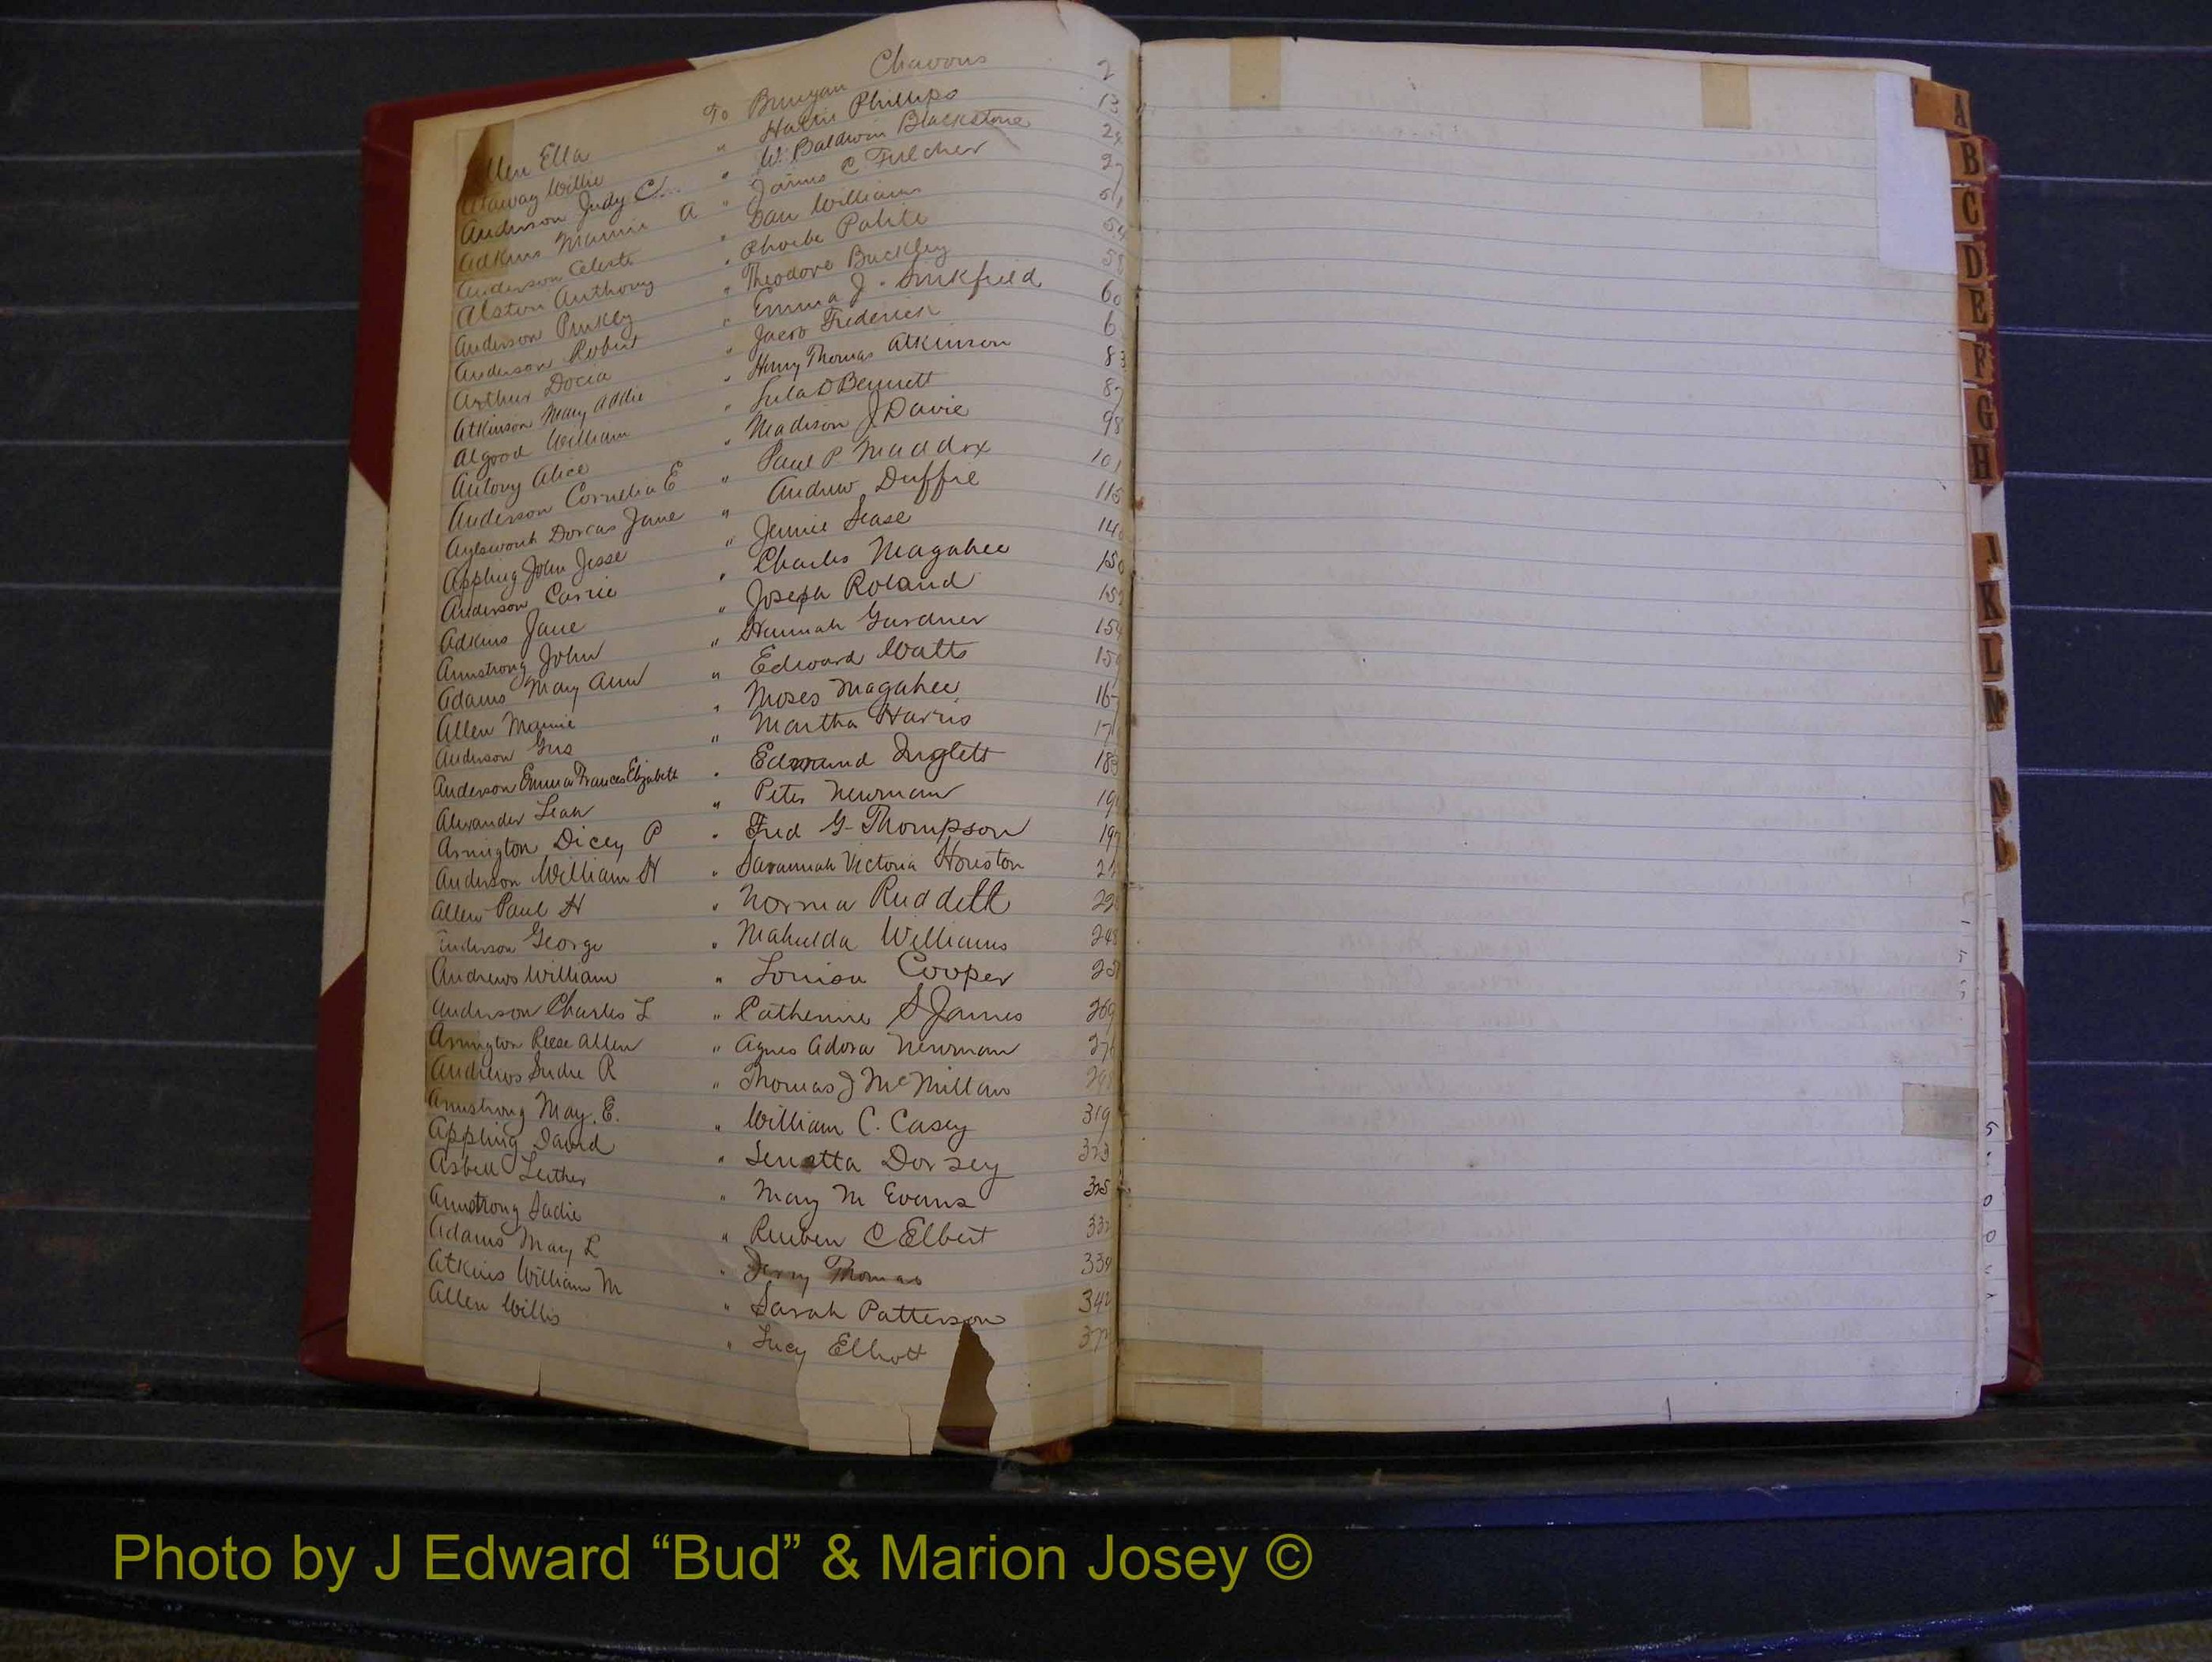 Allen Ella To Bunyan Chavous 2
Ataway Willie " Hattie Phillips 13
Anderson Judy C. " W. Baldwin Blackstone 24
Adkins Mamie A " James C Fulcher 27
Anderson Celeste " Dan Williams 51
Alston Anthony " Phoebe Polite 54
Anderson Pinkey " Theodore Buckley
Anderson Robert " Emma J. Sinkfield 60
Arthur Docia " Jacob Frederick
Atkinson Mary Addie " Henry Thomas Atkinson 83
Algood William " Lula D Bennett 87
Antony Alice " Madison J Davie 98
Anderson Cornelia E " Paul P. Maddox 101
Aylsworth Dorcas Jane " Andrew Duffie 115
Appling John Jesse " Jennie Sease
Anderson Carrie " Charles Magahee 150
Adkins Jane " Joseph Roland
Armstrong John " Hannah Gardner 154
Adams Mary Ann " Edward Watts
Allen Mamie " Moses Magahee
Anderson Gus " Martha Harris
Anderson Emma Frances Elizabeth " Edmund Inglett 183
Alexander Leah " Peter Newman
Arrington Dicey P " Fred G. Thompson 197
Anderson William H " Savannah Victoria Houston
Allen Paul H " Norma Ruddell
Anderson George " Mahulda Williams 248
Andrews William " Louisa Cooper
Anderson Charles L " Catherine S James 269
Arrington Reese Allen " Agnes Adora Newman
Andrews Sudie R " Thomas J McMillan
Armstrong May. E. " William C. Casey 319
Appling David " Senetta Dorsey 323
Asbell Luther " Mary M Evans 325
Armstrong Sadie " Reuben C Elbert
Adams May L " Jerry Thomas 339
Atkins William M " Sarah Patterson
Allen Willis " Lucy Elliott
A
B
C
D
E
F
G
H
I
K
L
M
N
Photo by J Edward “Bud” & Marion Josey ©